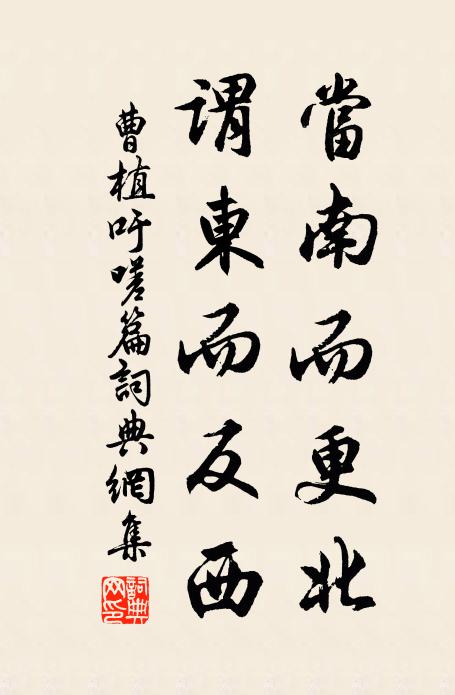 當南而更北
謂東而反西
曹植吁嗟篇詞典網集
詞典網印